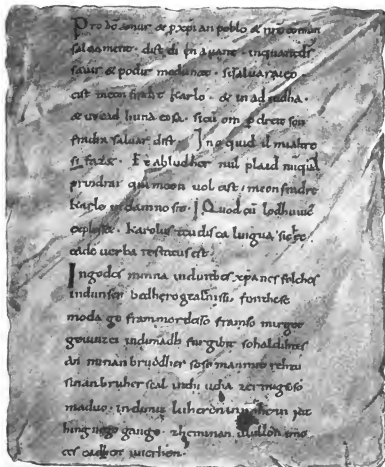 Pro dõ amur & p xp̃ian poblo & nr̃o cõmun
saluament. dist di en auant. inquantd̃s
sauir & podir medunat. sisaluaraieo
cist meon fradre Karlo. & in ad iudha.
& in cad huna cosa. sicũ om p dreit son
fradra saluar dist. Ino quid il mialtre
si faz&. Et abludher nul plaid nũquã
prindrai qui meon uol cist meon fradre
Karle in damno sit. Quod cũ lodhuuic
explesset. Karolus teudisca lingua sic hec
eade uerba testatus est.
Ingodes minna indinthes xp̃anes folches
indunser bedhero gealtnissi. fonthese
moda ge frammordesso framso mirgot
geuuizci indimadh furgibit sohaldihtes
an minan bruodher soso manmit rehtu
sinan bruher scal inthi utha zermigsoso
maduo. indimit luheren innohein iut
hing nege gango. zheminan uuillon imo
ces cadhen uuerhen.